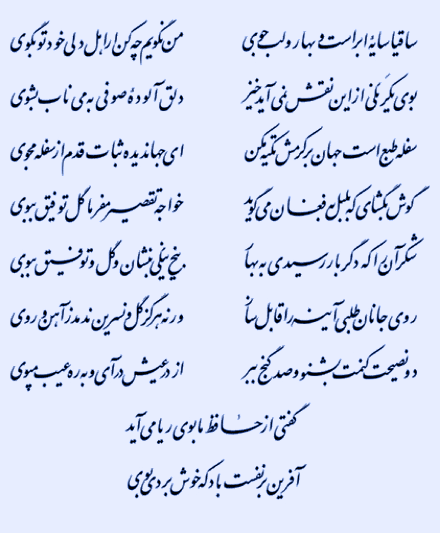 ساقیا سایهٔ ابر است و بهار و لب جوی
من نگویم چه کن ار اهل دلی خود تو بگوی
بوی یکرنگی از این نقش نمی‌آید خیز
دلق آلودهٔ صوفی به می ناب بشوی
سفله طبع است جهان بر کرمش تکیه مکن
ای جهاندیده ثبات قدم از سفله مجوی
گوش بگشای که بلبل به فغان می‌گوید
خواجه تقصیر مفرما گل توفیق ببوی
شکر آن را که دگر بار رسیدی به بهار
بیخ نیکی بنشان و گل توفیق ببوی
روی جانان طلبی آینه را قابل ساز
ور نه هرگز گل و نسرین ندمد ز آهن و روی
دو نصیحت کنمت بشنو و صد گنج ببر
از در عیش درآی و به ره عیب مپوی
گفتی از حافظ ما بوی ریا می‌آید
آفرین بر نفست باد که خوش بردی بوی